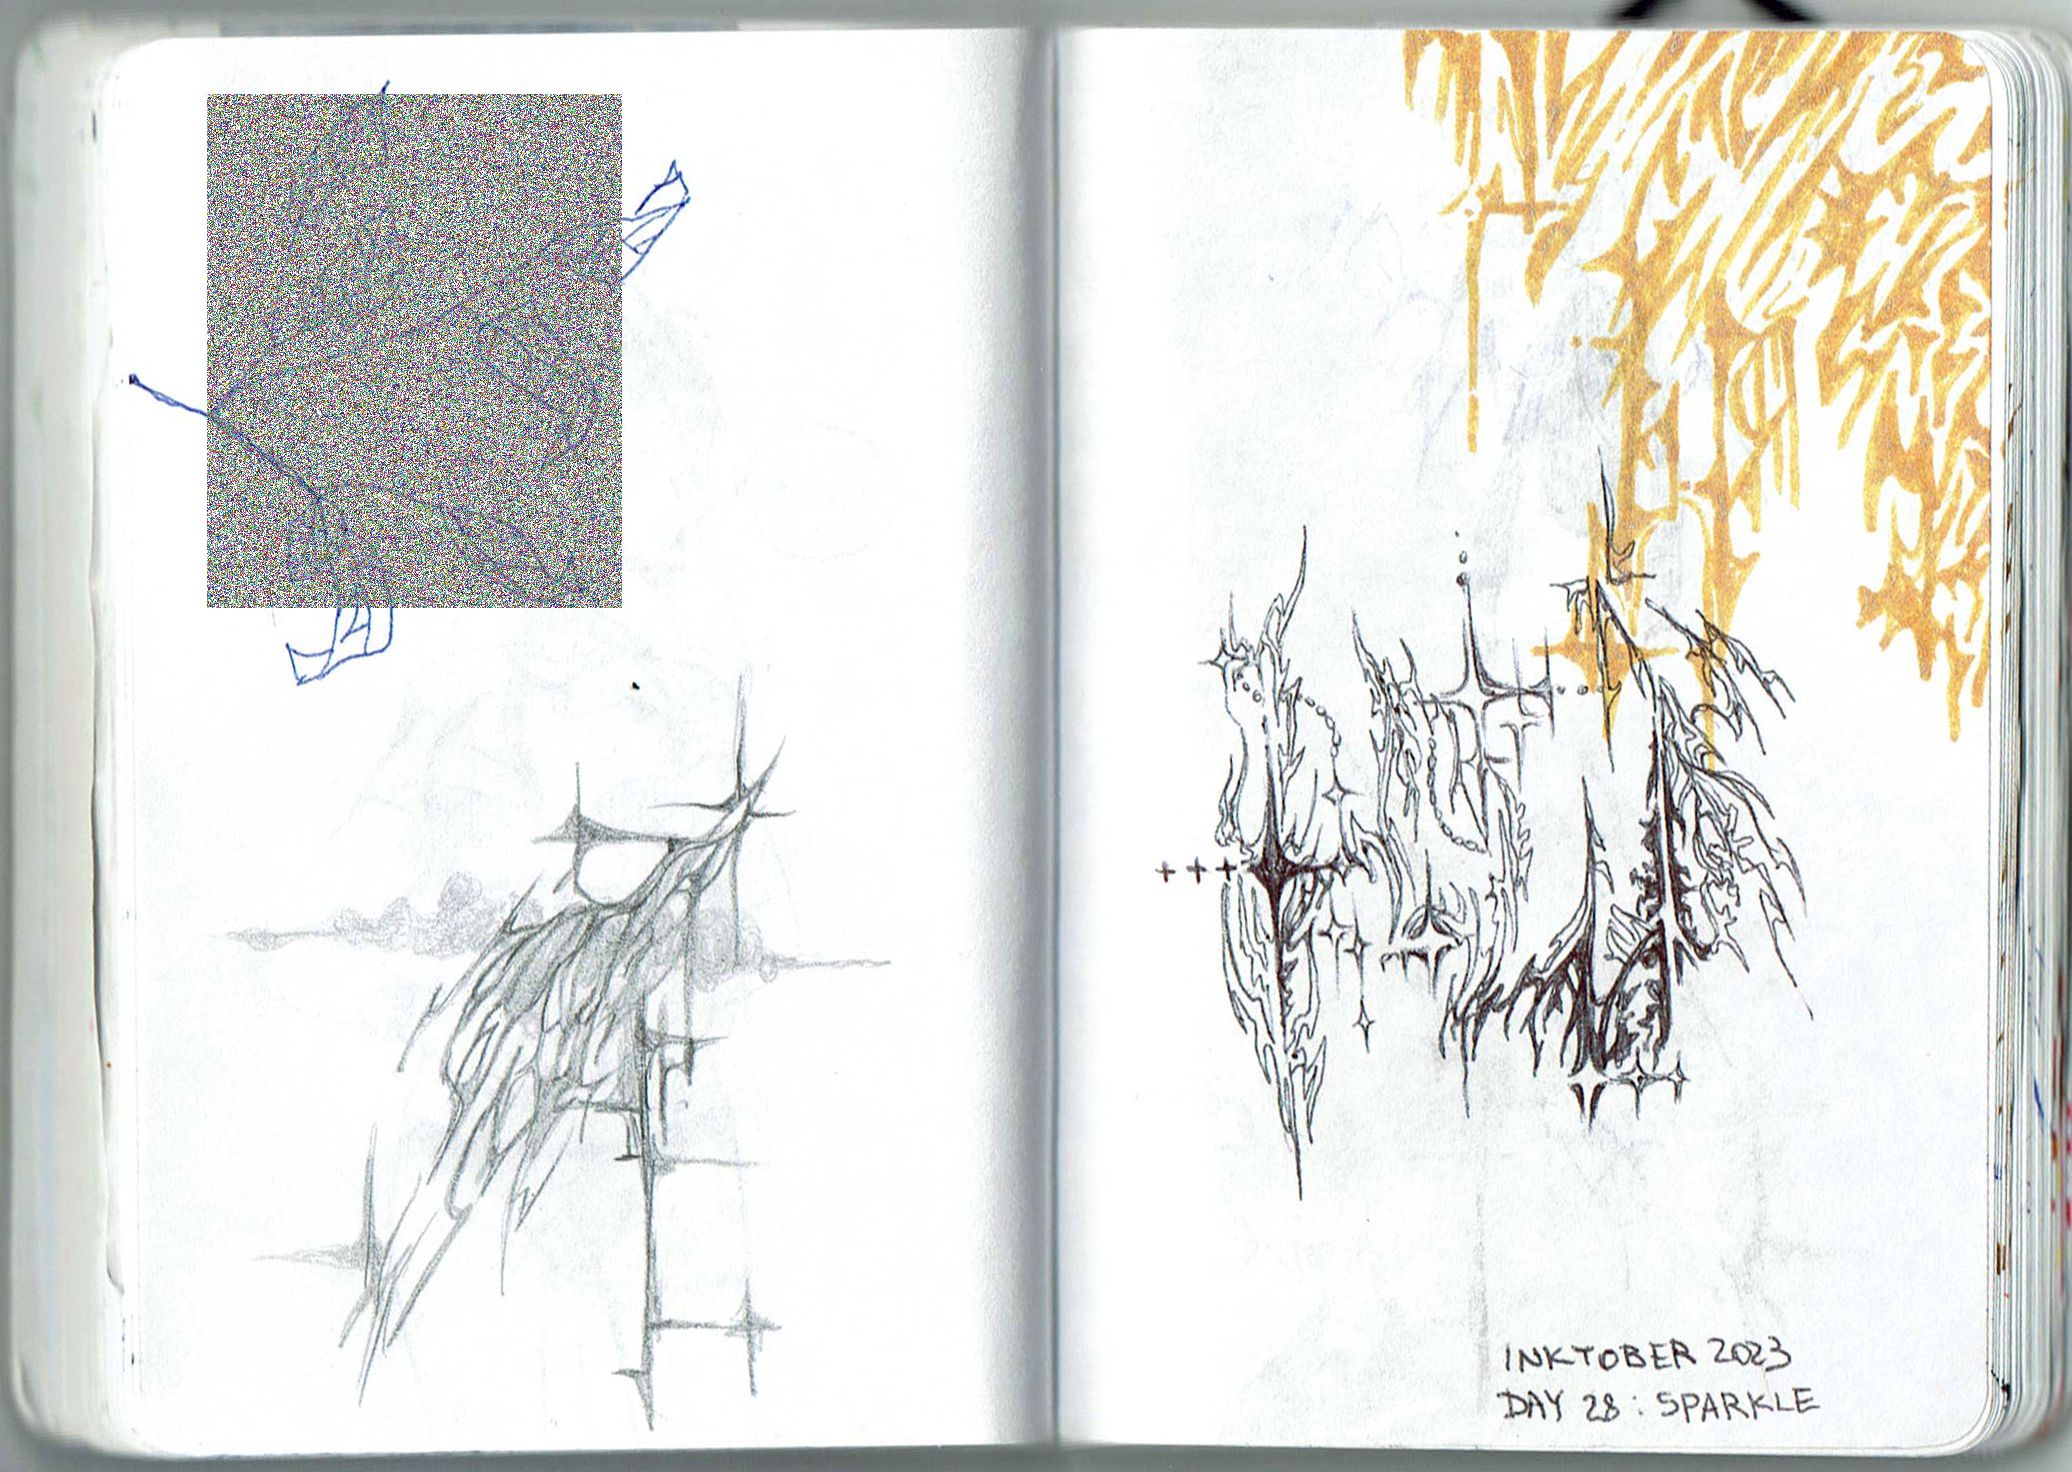 INKTOBER 2023
DAY 28: SPARKLE